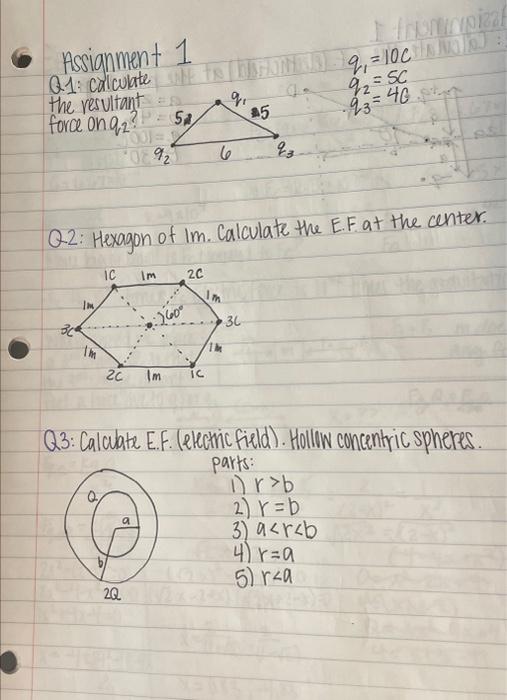 Assignment 1
Q1: calculate
the resultant
force on q2?
q1 = 10C
q2 = 5C
q3 = 4C
q1
5
5
q2
6
q3
Q2: Hexagon of 1m. Calculate the E.F. at the center.
1C 1m 2C
1m 1m
60°
3C 3C
1m 1m
2C 1m 1C
Q3: Calculate E.F. (electric field). Hollow concentric spheres.
parts:
1) r>b
2) r=b
3) a<r<b
4) r=a
5) r<a
Q
a
b
2Q